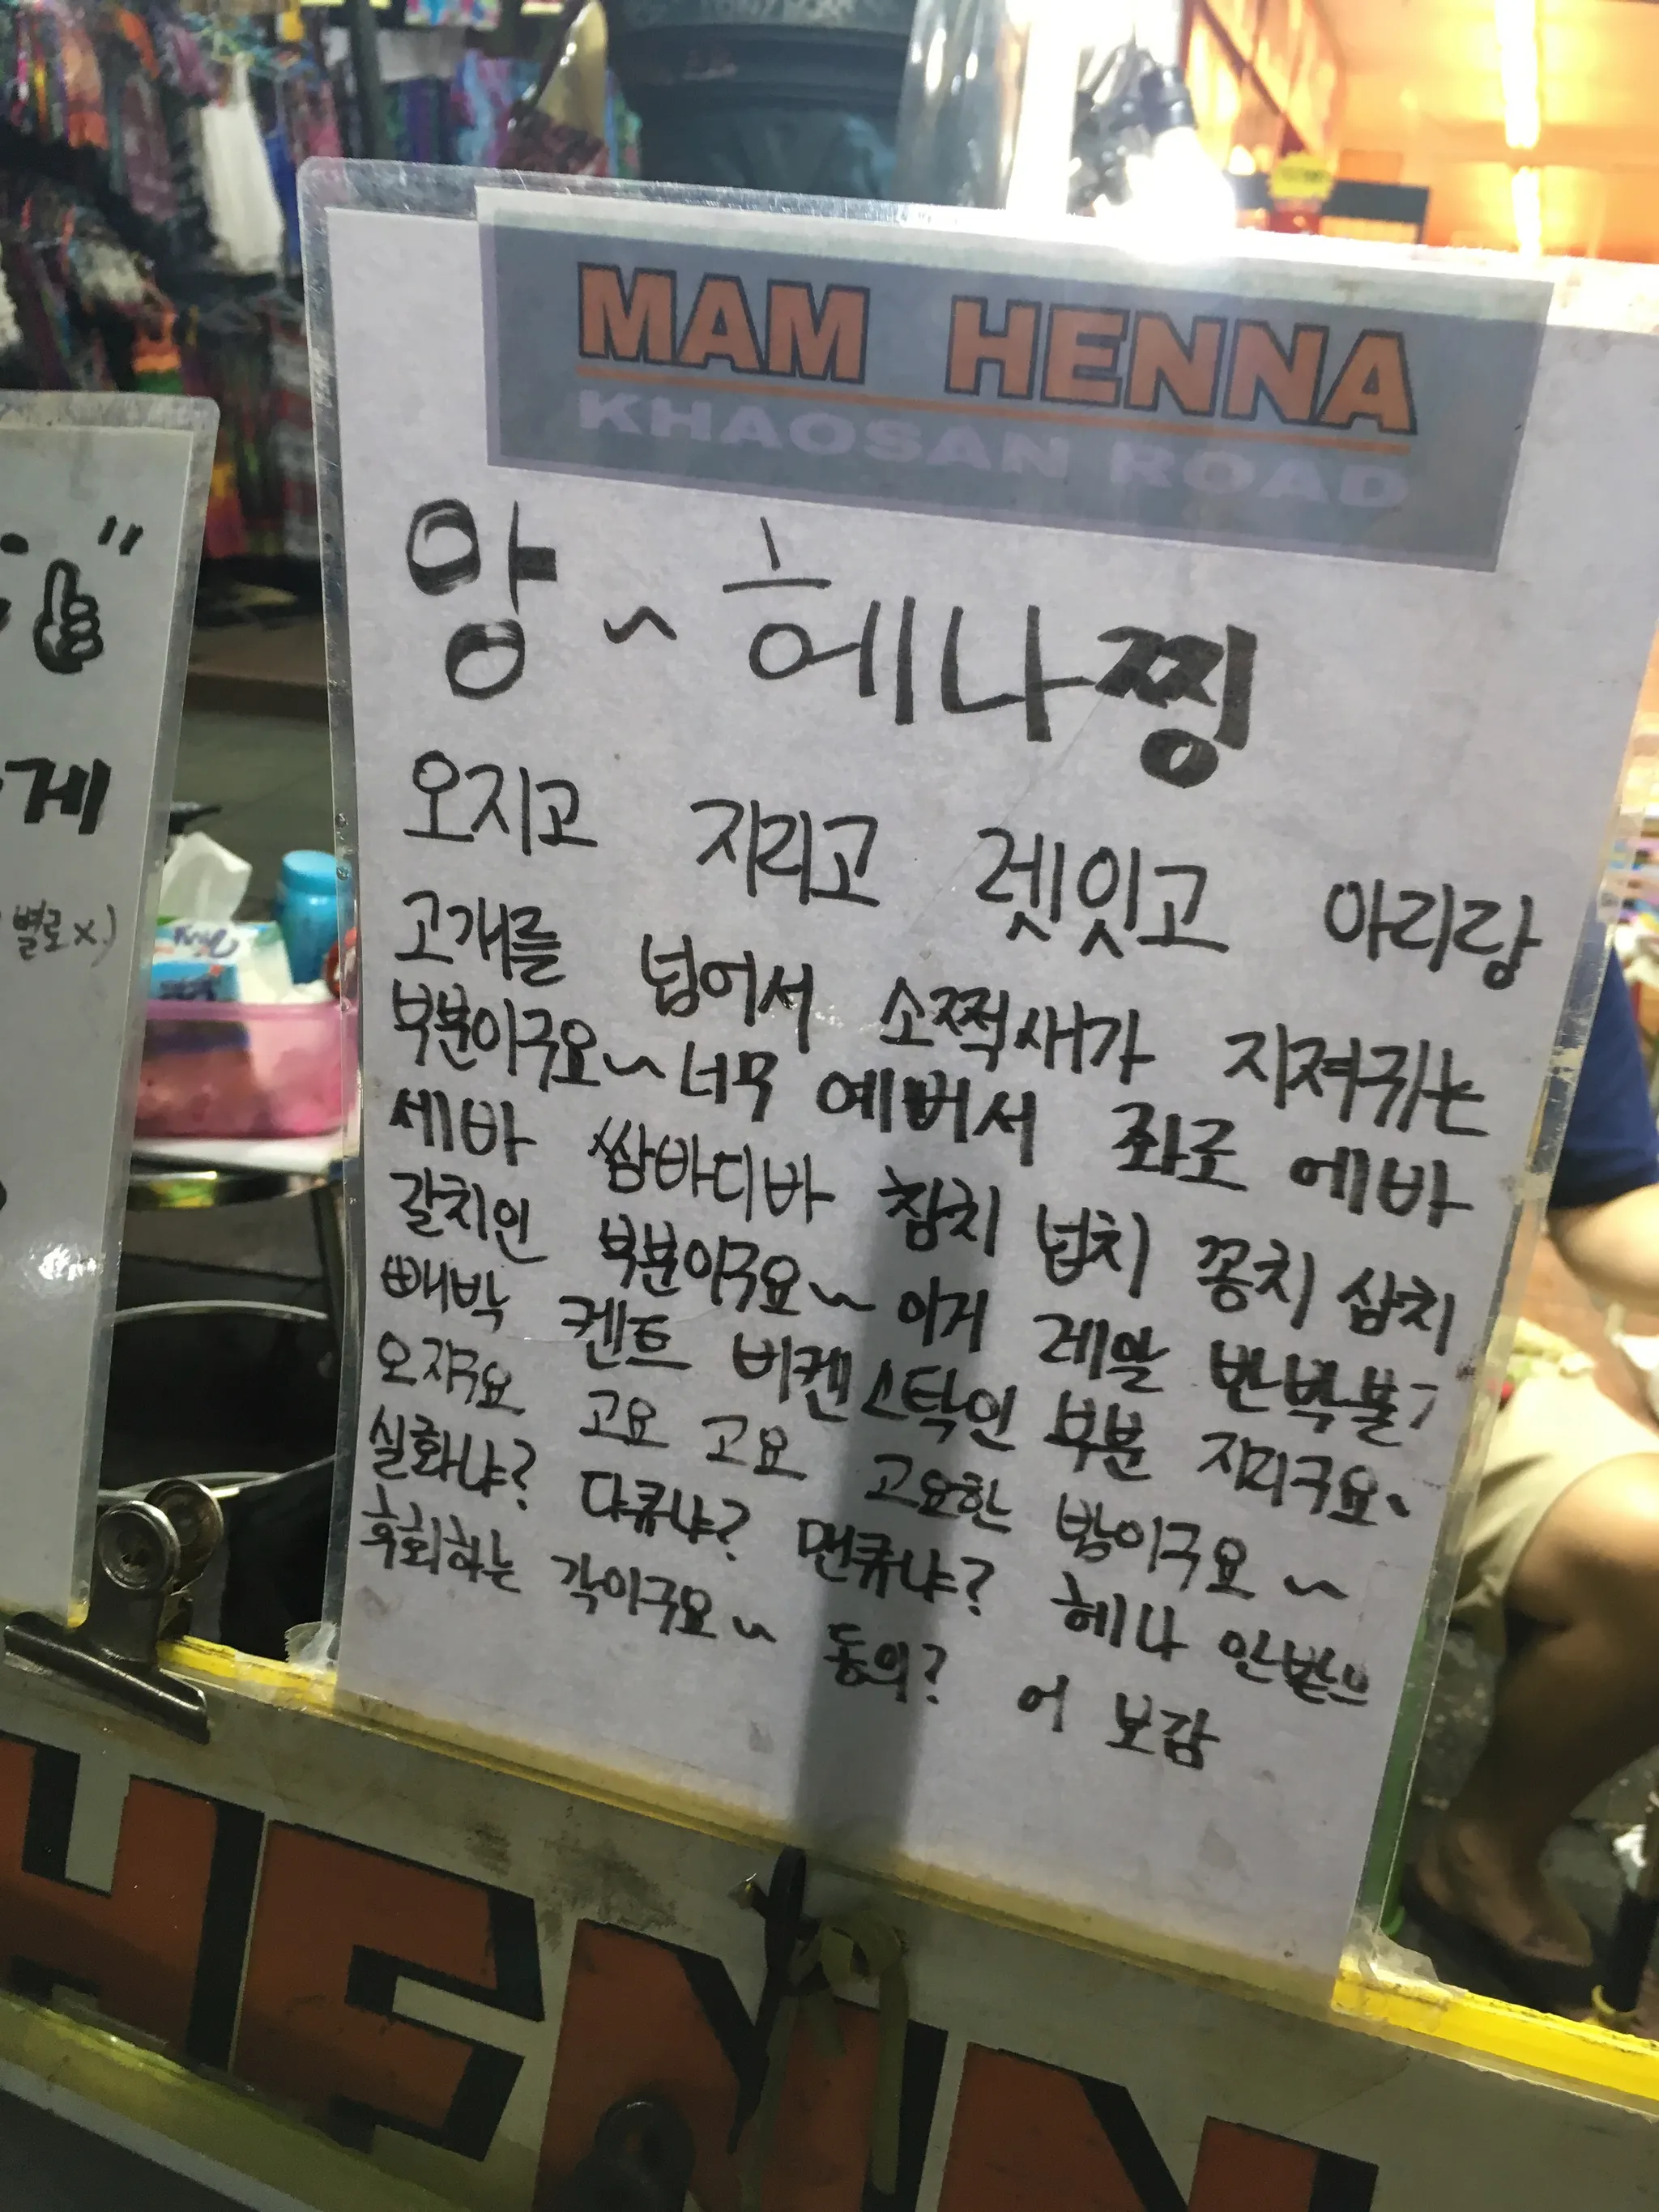 MAM HENNA
KHAOSAN ROAD
앙~헤나찡
오지고 지리고 렛잇고 아리랑
고개를 넘어서 소쩍새가 지져귀는
부분이구요~너무 예버서 좌로 에바
세바 쌈바디바 참치 넙치 꽁치 삼치
갈치인 부분이구요~ 이거 레알 반박불가
빼박 켄트 버켄스탁인 부분 지리구요~
오지구요 고요 고요 고요한 밤이구요~
실화냐? 다큐냐? 맨큐냐? 헤나 안받으
후회하는 각이구요~ 동의? 어 보감
게
별로x)
HENN